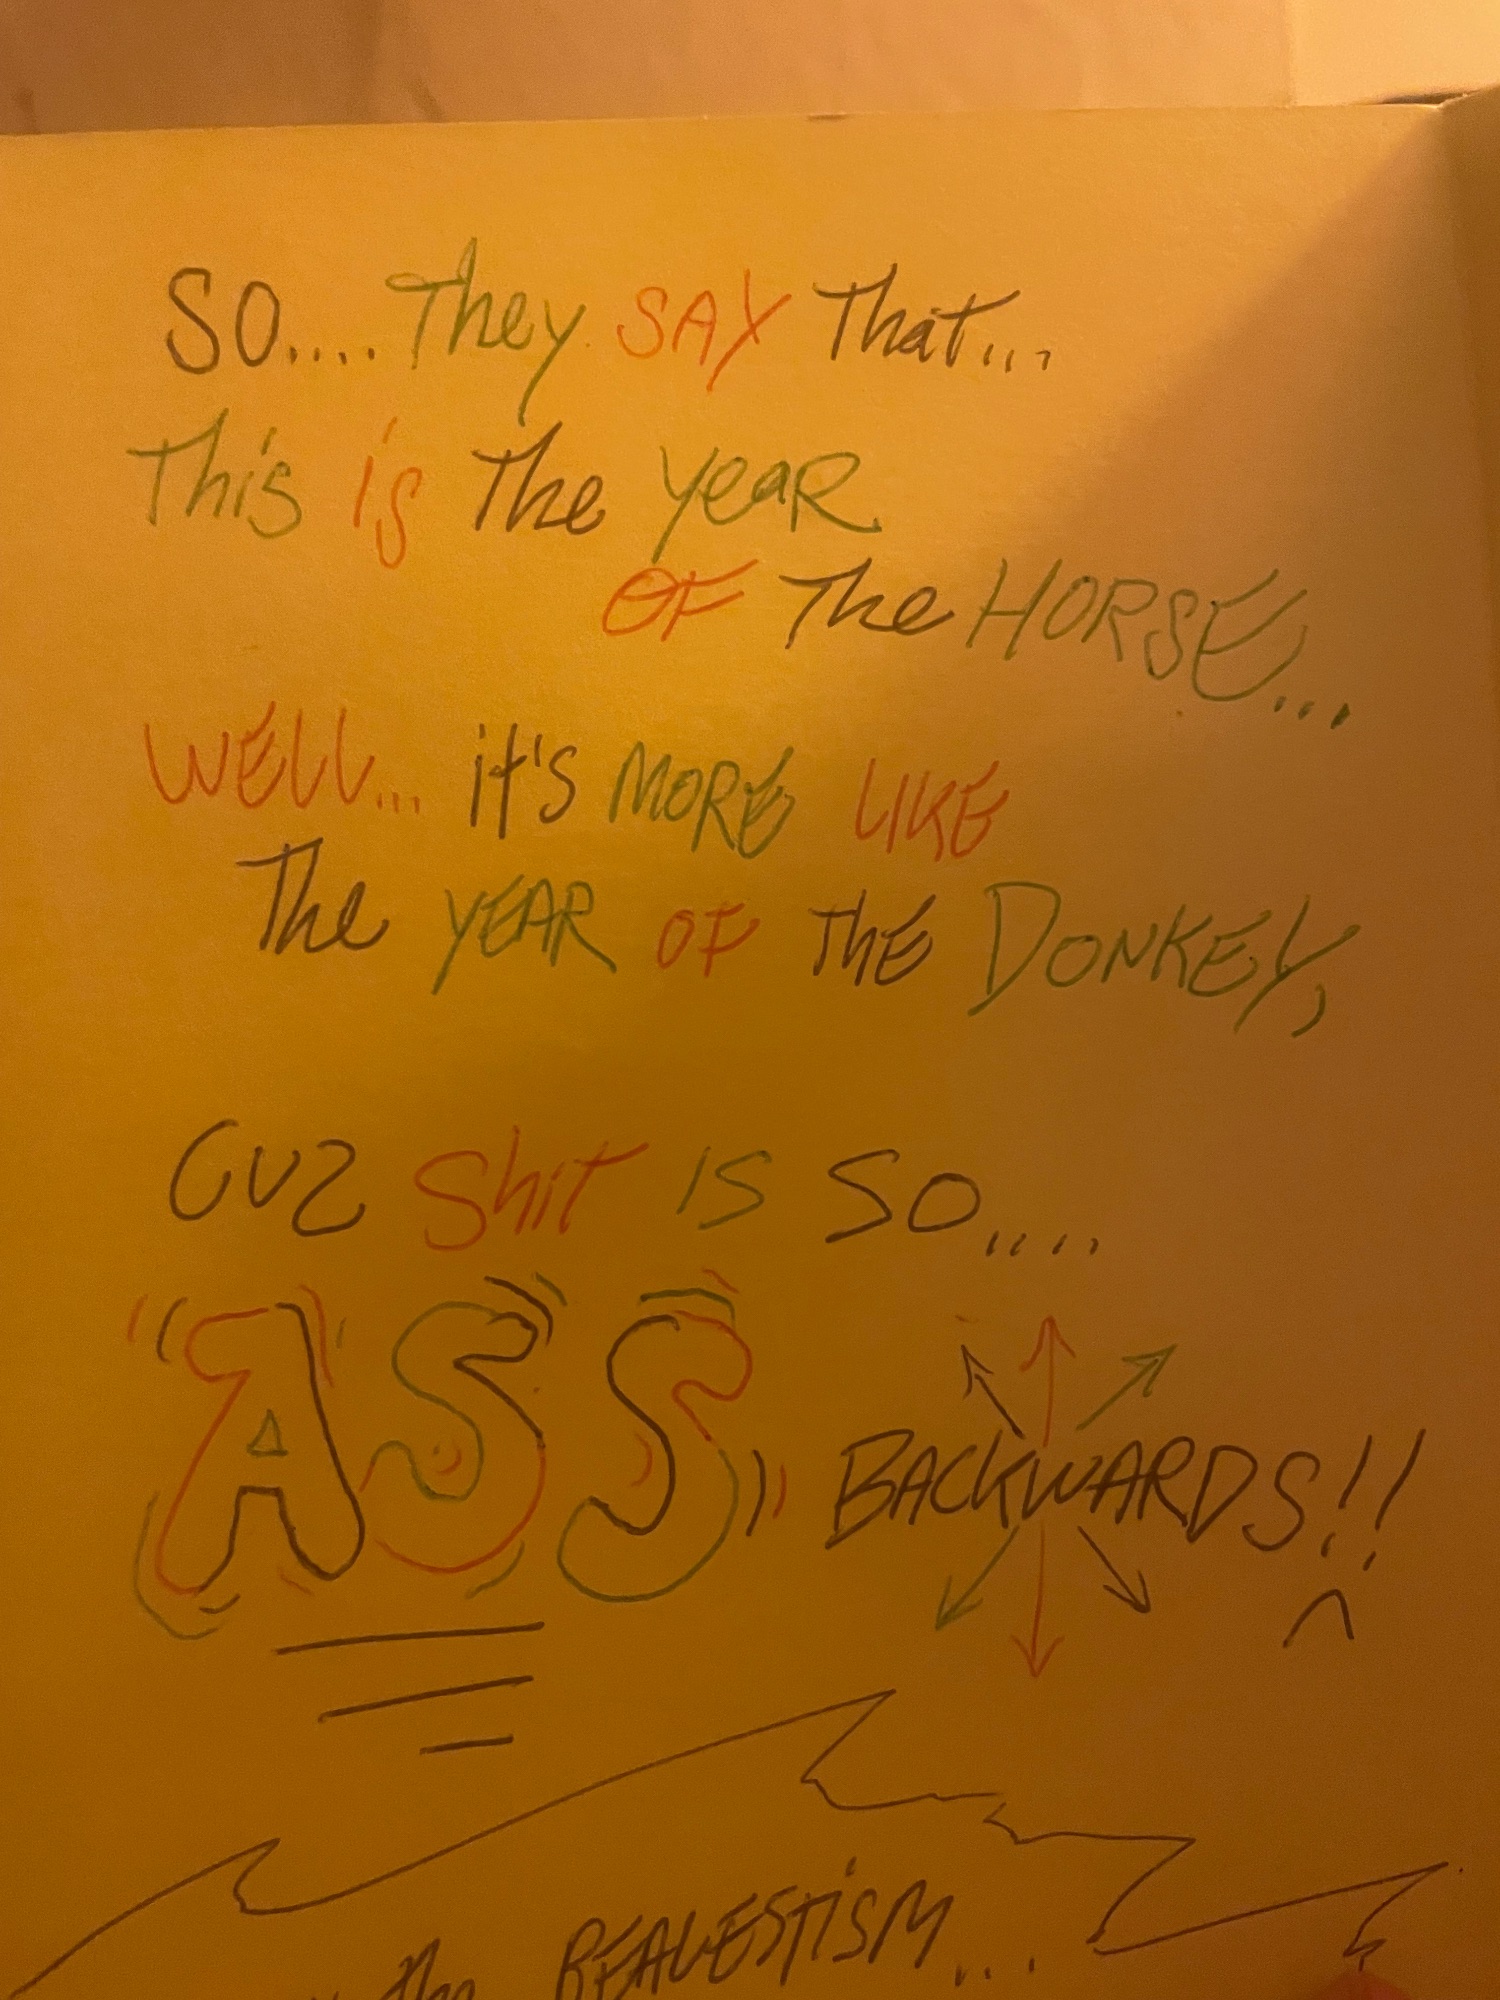 SO.... They SAY That...
This is The yeaR
OF The HORSE...
WELL... it's MORE LIKE
The YEAR OF THE DONKEY,
CUZ Shit IS SO....
"ASS" BACKWARDS!!
the REALESTiSM...